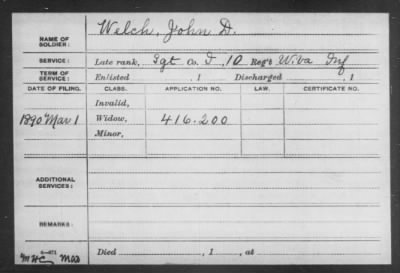 NAME OF SOLDIER: Welch, John D.
SERVICE: Late rank, Sgt Co. I, 10 Reg't W. Va Inf
TERM OF SERVICE: Enlisted , 1 Discharged , 1
DATE OF FILING. CLASS. APPLICATION NO. LAW. CERTIFICATE NO.
Invalid,
1890 Mar 1 Widow, 416.200
Minor,
ADDITIONAL SERVICES:
REMARKS:
Died , 1 , at